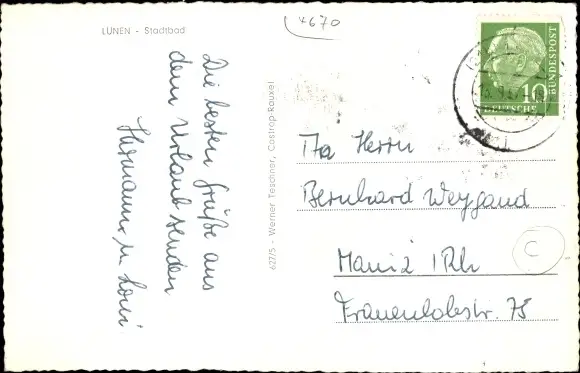 LÜNEN - Stadtbad
4670
Die besten Grüße aus
dem Urlaub senden
Hermann u. Loni
62775 - Werner Teschner, Castrop-Rauxel
10
BUNDESPOST
DEUTSCHE
Herrn
Bernhard Weygand
Mainz / Rh
Frauenlobstr. 75
C